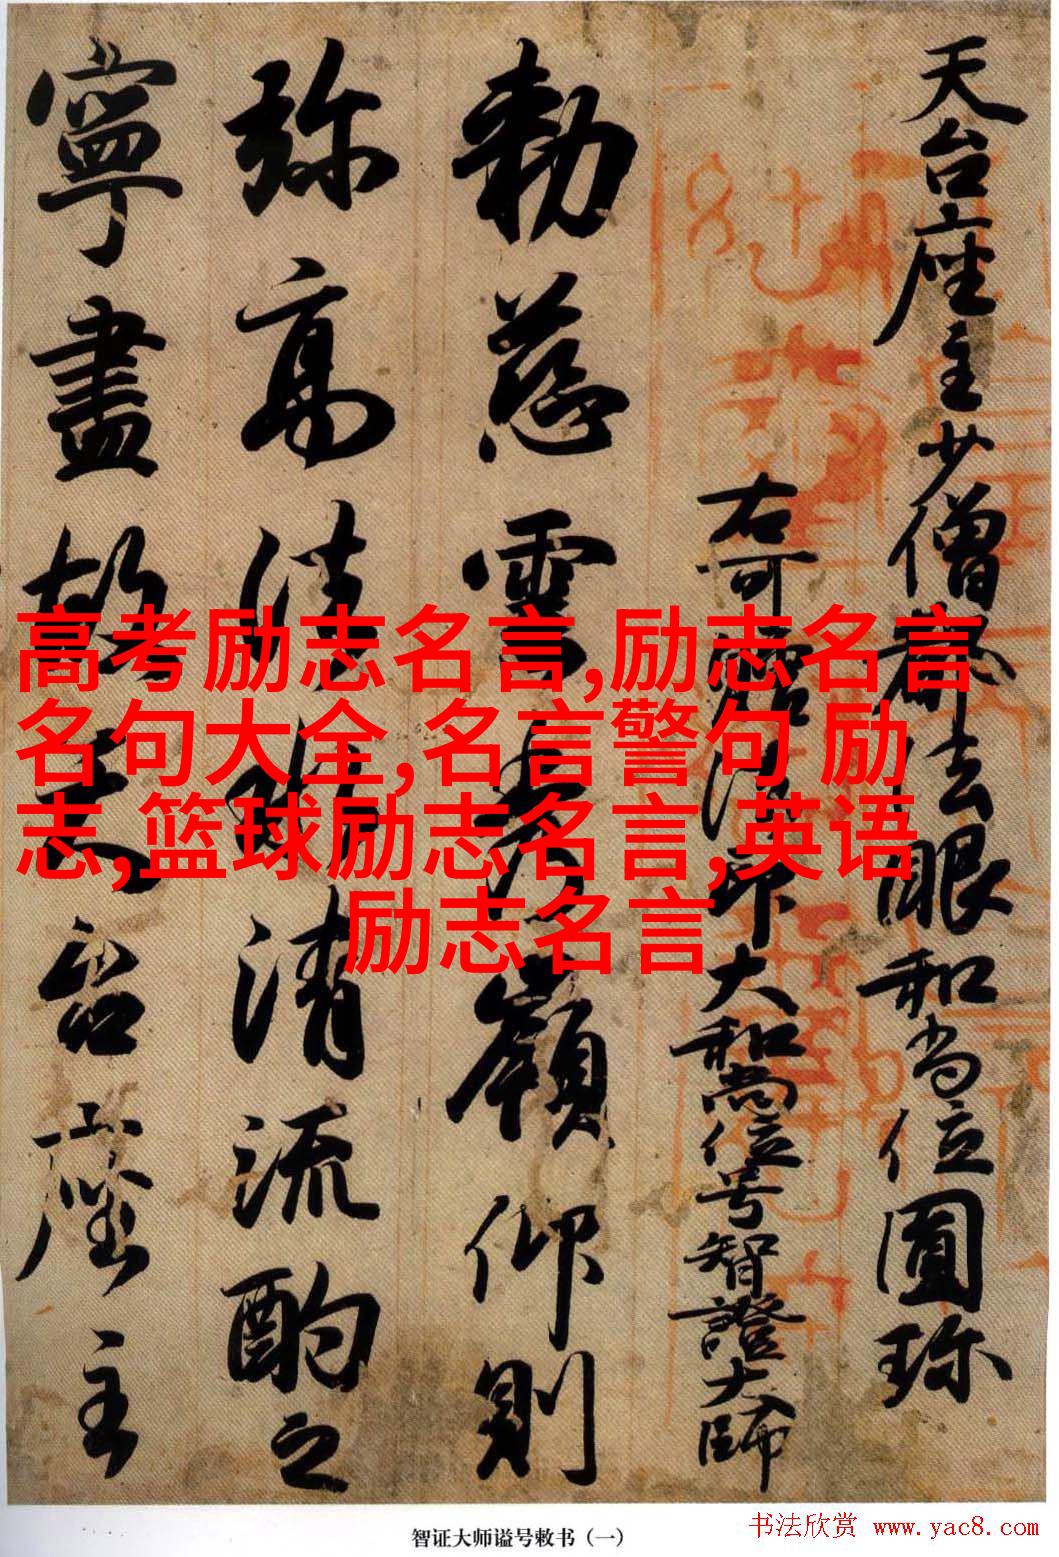 天台座主少僧都法眼和尚位圓珎
右可贈法印大和尚位号智證大師
勅慈雲秀嶺仰則
弥高法清流酌之
寧盡故天台座主
高考励志名言,励志名言
名句大全,名言警句 励
志,篮球励志名言,英语
励志名言
智证大师谥号敕书（一）
书法欣赏 www.yac8.com